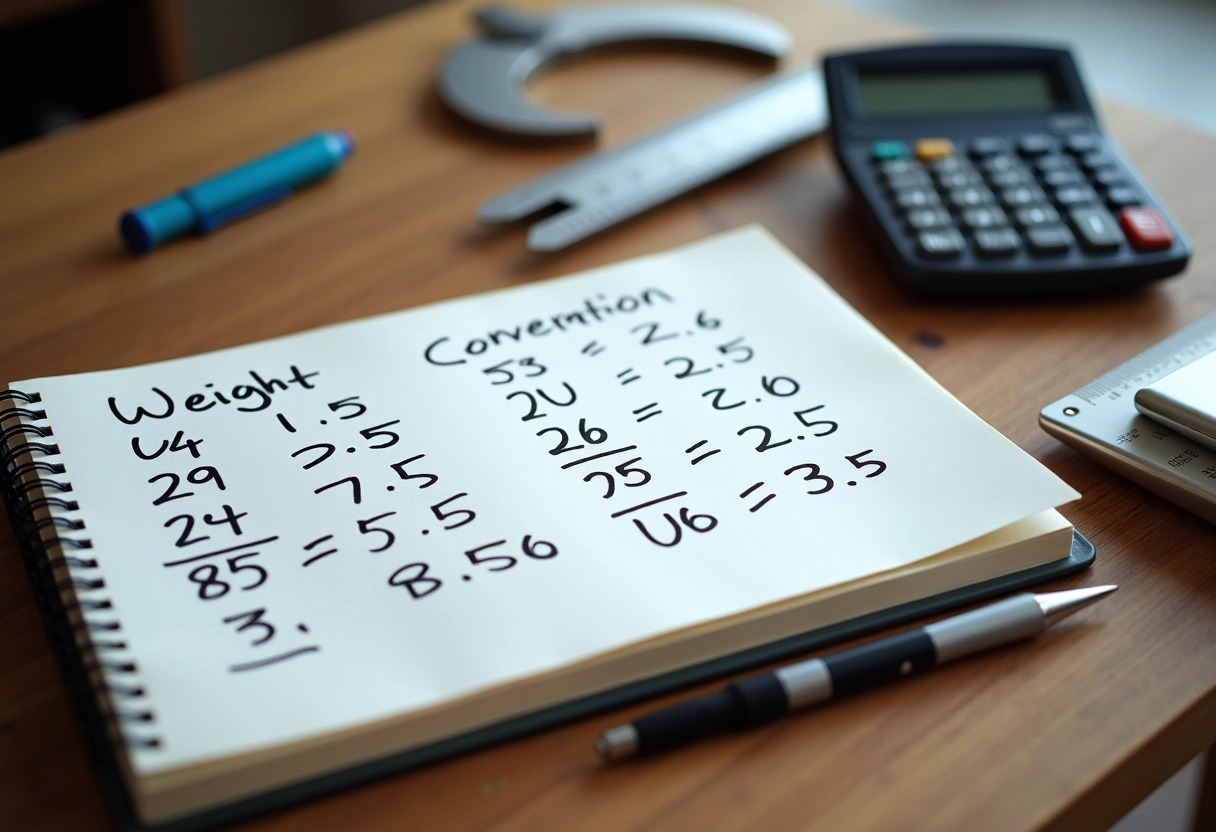 Weight
U4 1.5
29 2.5
24 7.5
85 = 5.5
3. 8.56
Convemtion
53 = 2.6
2U = 2.5
26 = 2.6
25 = 2.5
U6 = 3.5